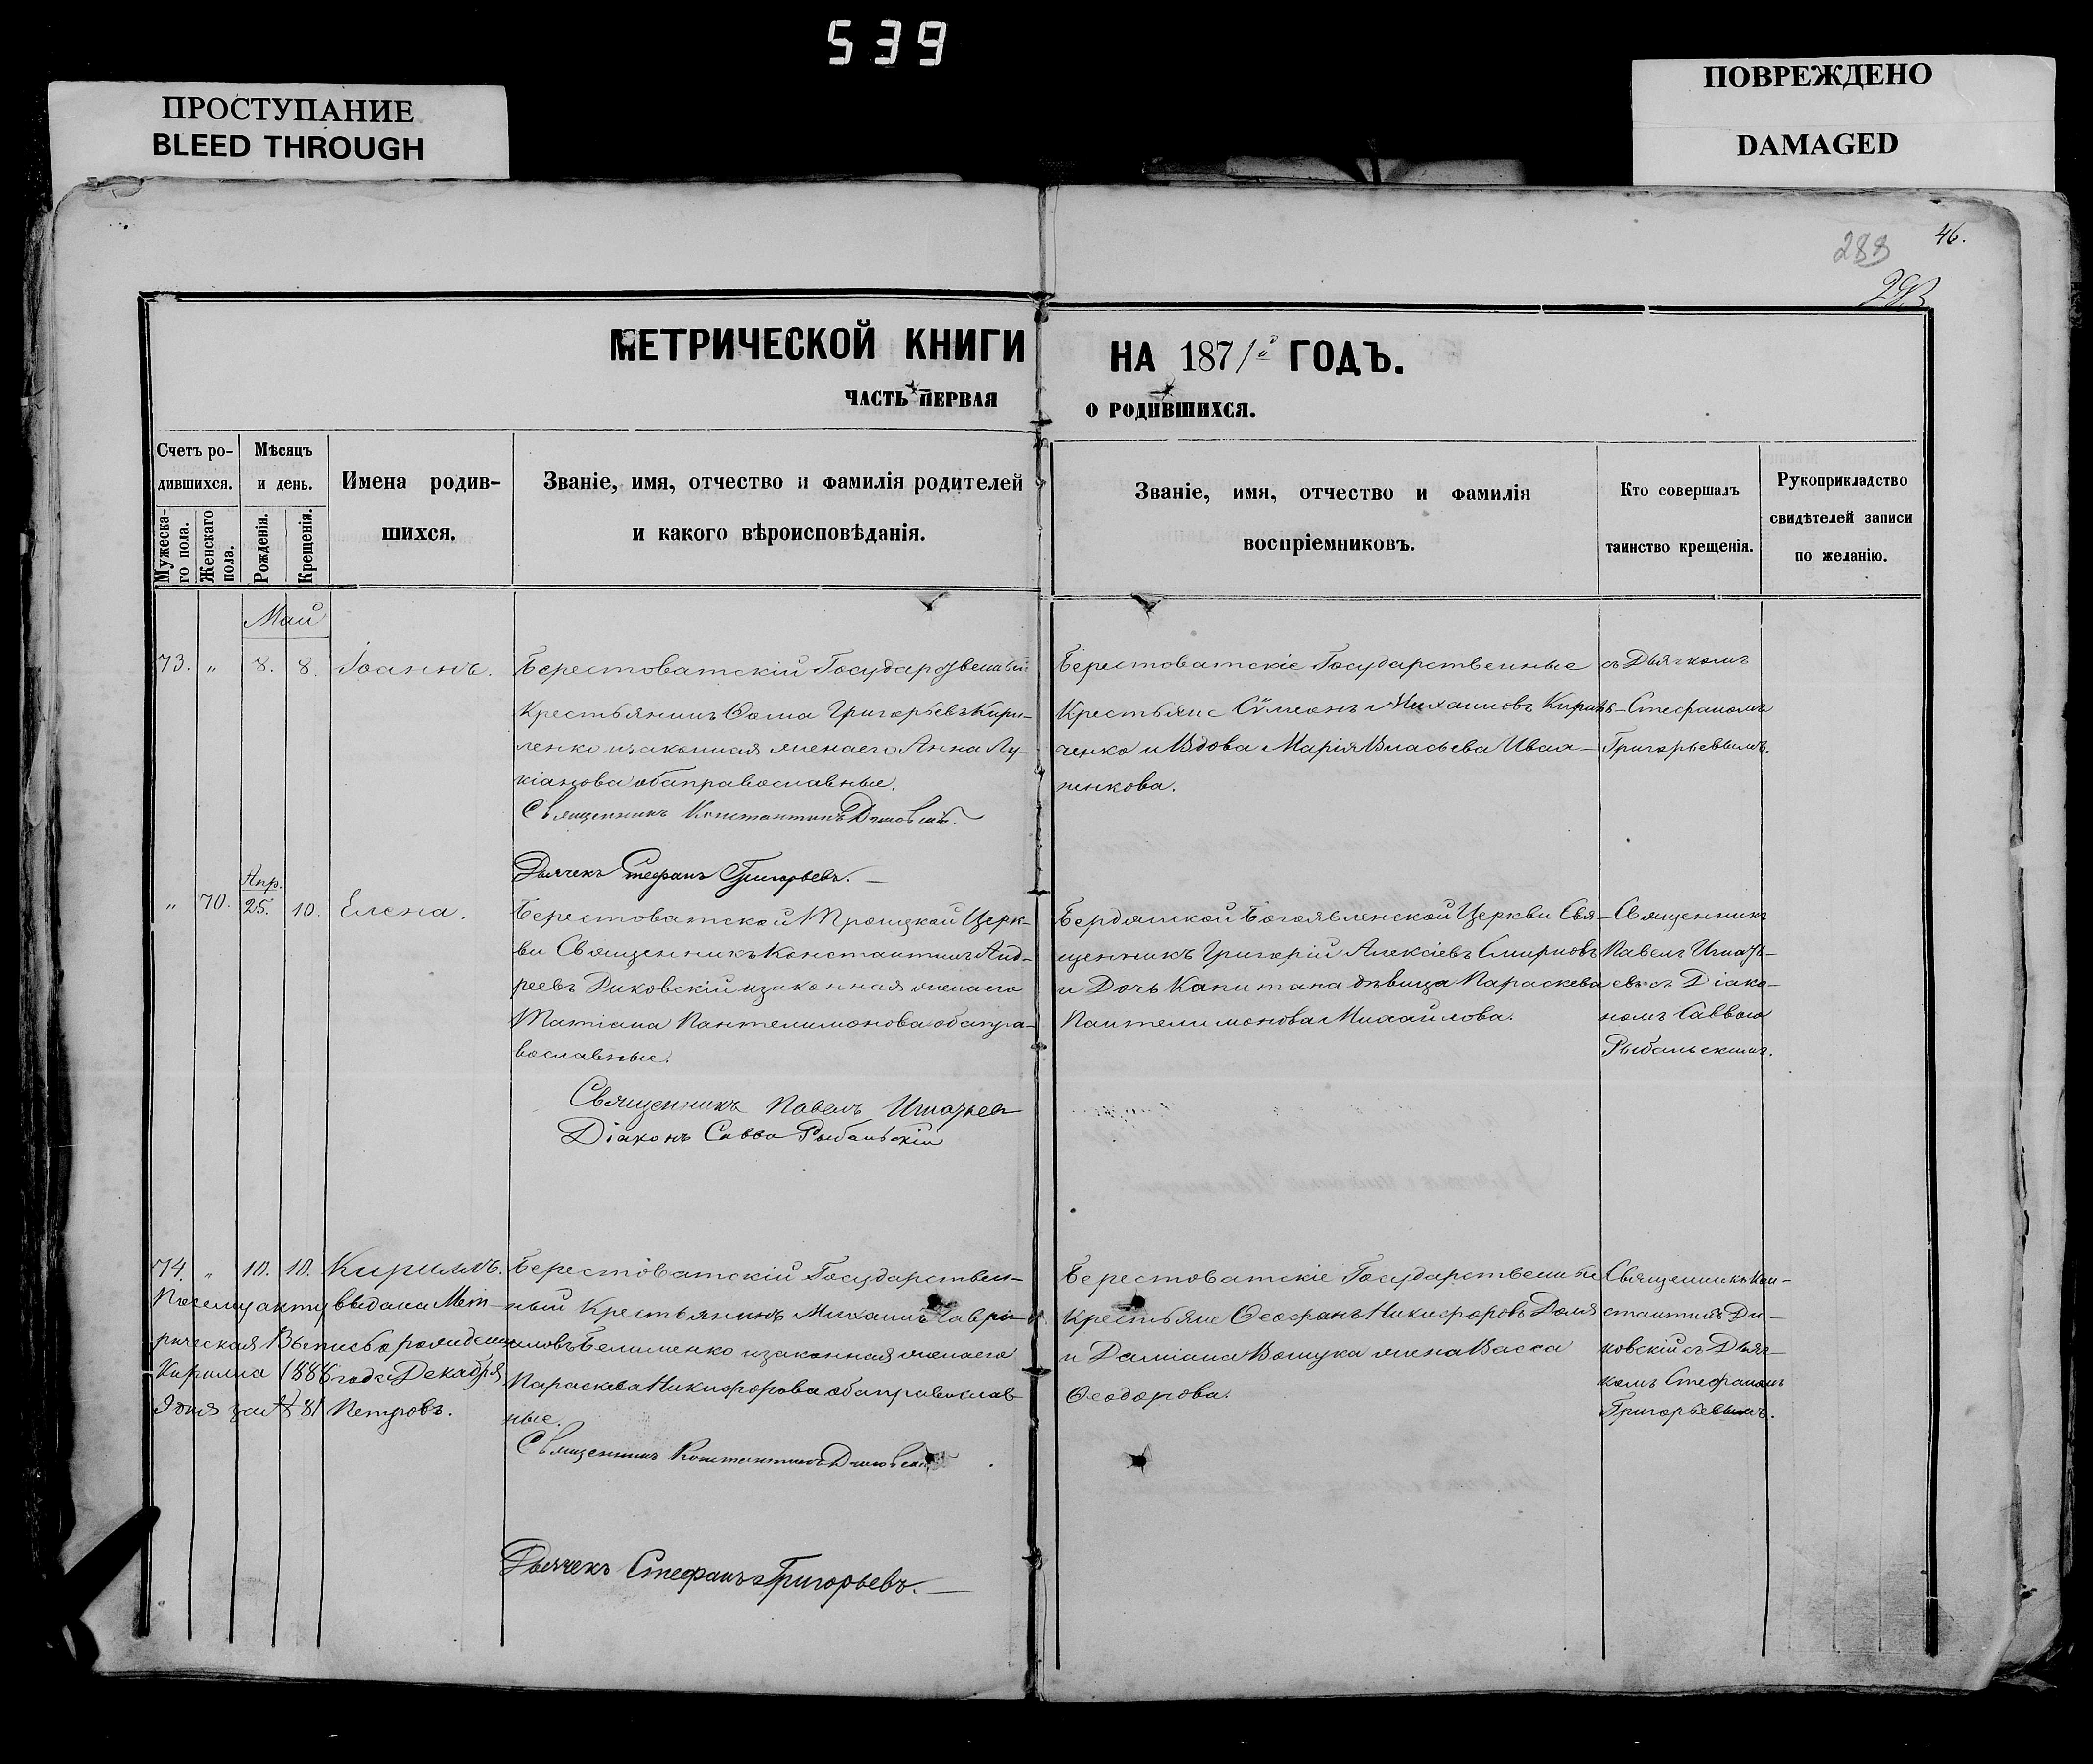 539
ПРОСТУПАНИЕ
BLEED THROUGH
ПОВРЕЖДЕНО
DAMAGED
46.
288
МЕТРИЧЕСКОЙ КНИГИ НА 1871й ГОДЪ.
ЧАСТЬ ПЕРВАЯ О РОДИВШИХСЯ.
Счетъ ро-
дившихся.
Мужеска-
го пола.
Женскаго
пола.
Мѣсяцъ
и день.
Рожденія.
Крещенія.
Имена родив-
шихся.
Званіе, имя, отчество и фамилія родителей
и какого вѣроисповѣданія.
Званіе, имя, отчество и фамилія
воспріемниковъ.
Кто совершалъ
таинство крещенія.
Рукоприкладство
свидѣтелей записи
по желанію.
Май
73. „ 8. 8. Іоаннъ.
Берестоватскій Государственный
Крестьянинъ Ѳома Григорьевъ Кири-
ленко и законная жена его Анна Лу-
кіанова оба православные.
Священникъ Константинъ Диковскій.
Дьячекъ Стефанъ Григорьевъ.
Берестоватскіе Государственные
Крестьяне Сѵмеонъ Михаиловъ Кири-
ченко и Вдова Марія Власьева Иваа-
ненкова.
съ Дьячкомъ
Стефаномъ
Григорьевымъ.
„ 70. Апр. 25. 10. Елена.
Берестоватской Троицкой Церк-
ви Священникъ Константинъ Анд-
реевъ Диковскій и законная жена его
Татіана Пантелимонова оба пра-
вославные.
Священникъ Павелъ Игнатьев
Діаконъ Савва Рыбальскій
Бердянской Богоявленской Церкви Свя-
щенникъ Григорій Алексіевъ Смирновъ
и Дочь Капитана дѣвица Параскева
Пантелимонова Михаилова.
Священникъ
Павелъ Игнатъ-
евъ съ Діако-
номъ Саввою
Рыбальскимъ.
74. „ 10. 10. Кириллъ.
По сему акту выдана Мет-
рическая Выпись о рождении
Кирилла 1888 года Декабря
9 дня за № 81 Петровъ.
Берестоватскій Государствен-
ный Крестьянинъ Михаилъ Гаврі-
иловъ Белименко и законная жена его
Параскева Никифорова оба православ-
ные.
Священникъ Константинъ Диковскій
Дьячекъ Стефанъ Григорьевъ.
Берестоватскіе Государственные
Крестьяне Ѳеофанъ Никифоровъ Доля
и Даміана Вощука жена Васса
Ѳеодорова.
Священникъ Кон-
стантинъ Ди-
ковскій съ Дьяч-
комъ Стефаномъ
Григорьевымъ.